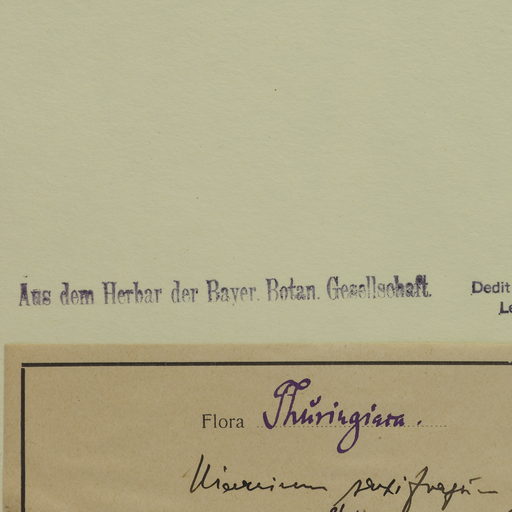 Aus dem Herbar der Bayer. Botan. Gesellschaft.
Dedit
Le
Flora Thüringiaca.
Hieracium saxifragum